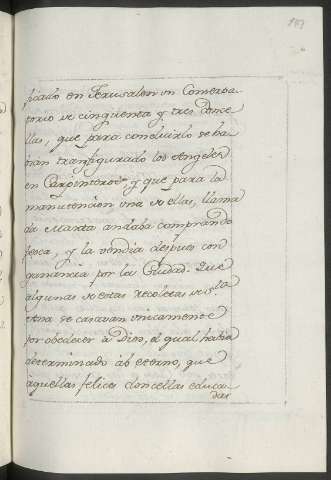 ficado en Jerusalen un Conserva-
torio de cinquenta y tres Donce-
llas, que para concluirlo se ha-
bian tranfigurado los Angeles
en Carpinteros, y que para la
manutencion una de ellas, llama-
da Marta andaba comprando
pesca, y la vendia despues con
ganancia por la Ciudad. Que
algunas de estas recoletas de Sta
Ana se casavan unicamente
por obedecer à Dios, el qual habia
determinado ab eterno, que
aquellas felices doncellas educa-
das